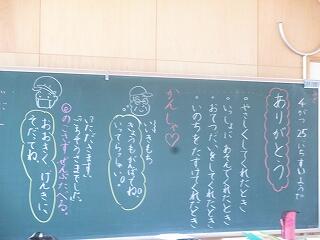 4がつ25にちすいようび
ありがとう
・やさしくしてくれたとき
・いっしょにあそんでくれたとき
・おてつだいをしてくれたとき
・いのちをたすけてくれたとき
かんしゃ♡
いいきもち
きょうもがんばってね。
いってらっしゃい。
いただきます。
ごちそうさまでした。
のこさずぜんぶたべる。
おおきく げんきに
そだってね。